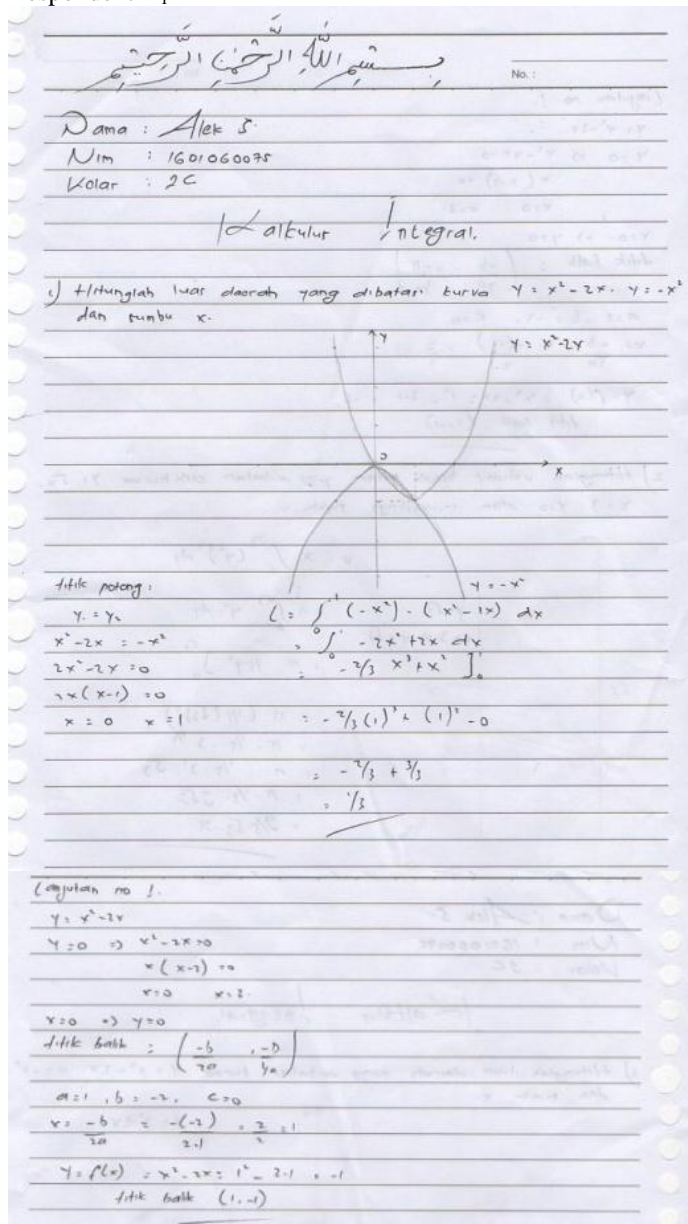 بسم الله الرحمن الرحيم
No. :
Nama : Alek S.
Nim : 1601060075
Kelas : 2C
Kalkulus Integral.
1.) Hitunglah luas daerah yang dibatasi kurva y = x² - 2x. y = -x²
dan sumbu x.
Y
y = x² - 2x
0
x
y = -x²
titik potong :
y₁ = y₂
x² - 2x = -x²
2x² - 2x = 0
2x (x-1) = 0
x = 0 x = 1
L = ∫₀¹ (-x²) - (x² - 2x) dx
= ∫₀¹ -2x² + 2x dx
= -2/3 x³ + x² ]₀¹
= -2/3 (1)³ + (1)² - 0
= -2/3 + 3/3
= 1/3
Lanjutan no 1.
y = x² - 2x
y = 0 => x² - 2x = 0
x (x-2) = 0
x = 0 x = 2.
x = 0 => y = 0
titik balik : (-b/2a , -D/4a)
a = 1 , b = -2, c = 0
x = -b/2a = -(-2)/2.1 = 2/2 = 1
y = f(x) = x² - 2x = 1² - 2.1 = -1
titik balik (1, -1)